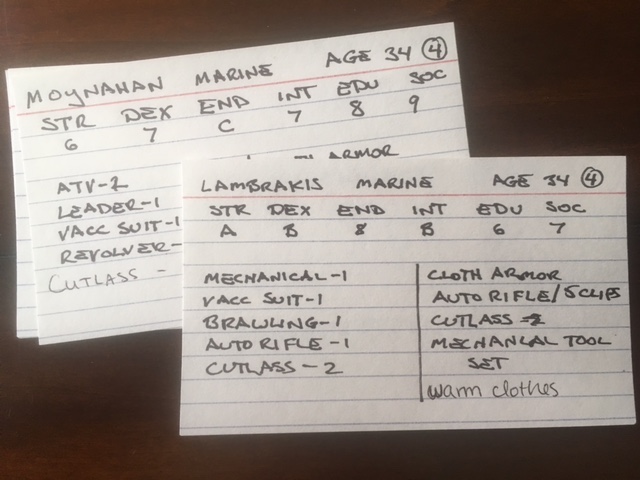 MOYNAHAN MARINE AGE 34 4
STR DEX END INT EDU SOC
6 7 C 7 8 9
ARMOR
ATV-2
LEADER-1
VACC SUIT-1
REVOLVER-
CUTLASS -
LAMBRAKIS MARINE AGE 34 4
STR DEX END INT EDU SOC
A B 8 B 6 7
MECHANICAL-1
VACC SUIT-1
BRAWLING-1
AUTO RIFLE-1
CUTLASS-2
CLOTH ARMOR
AUTO RIFLE/5 CLIPS
CUTLASS
MECHANCAL TOOL
SET
warm clothes